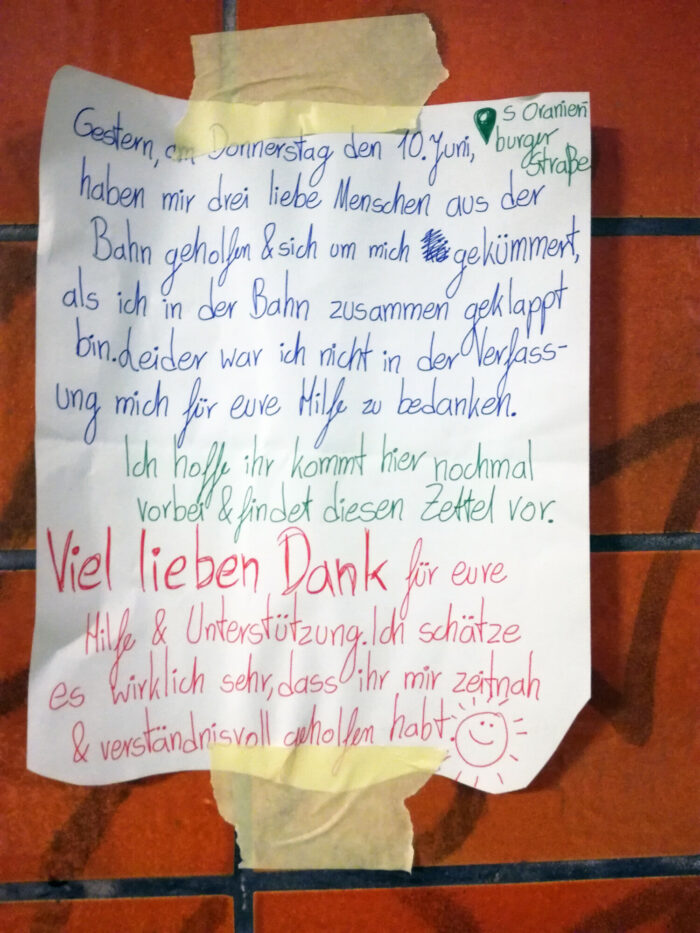 Gestern, am Donnerstag den 10. Juni,
S Oranien
burger
Straße
haben mir drei liebe Menschen aus der
Bahn geholfen & sich um mich gekümmert,
als ich in der Bahn zusammen geklappt
bin. Leider war ich nicht in der Verfass-
ung mich für eure Hilfe zu bedanken.
Ich hoffe ihr kommt hier nochmal
vorbei & findet diesen Zettel vor.
Viel lieben Dank für eure
Hilfe & Unterstützung. Ich schätze
es wirklich sehr, dass ihr mir zeitnah
& verständnisvoll geholfen habt.